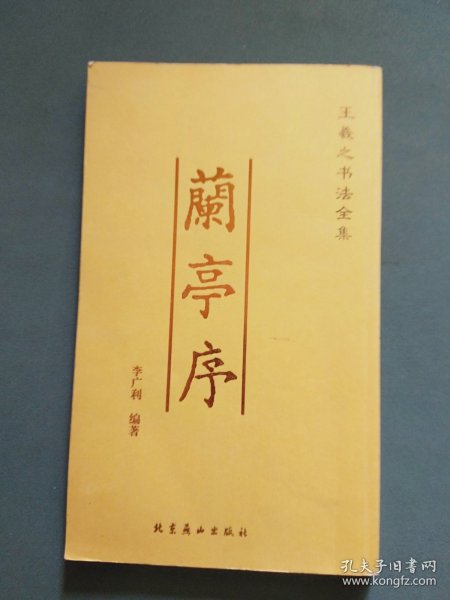 王羲之书法全集
蘭亭序
李广利 编著
北京燕山出版社
孔夫子旧书网
www.kongfz.com